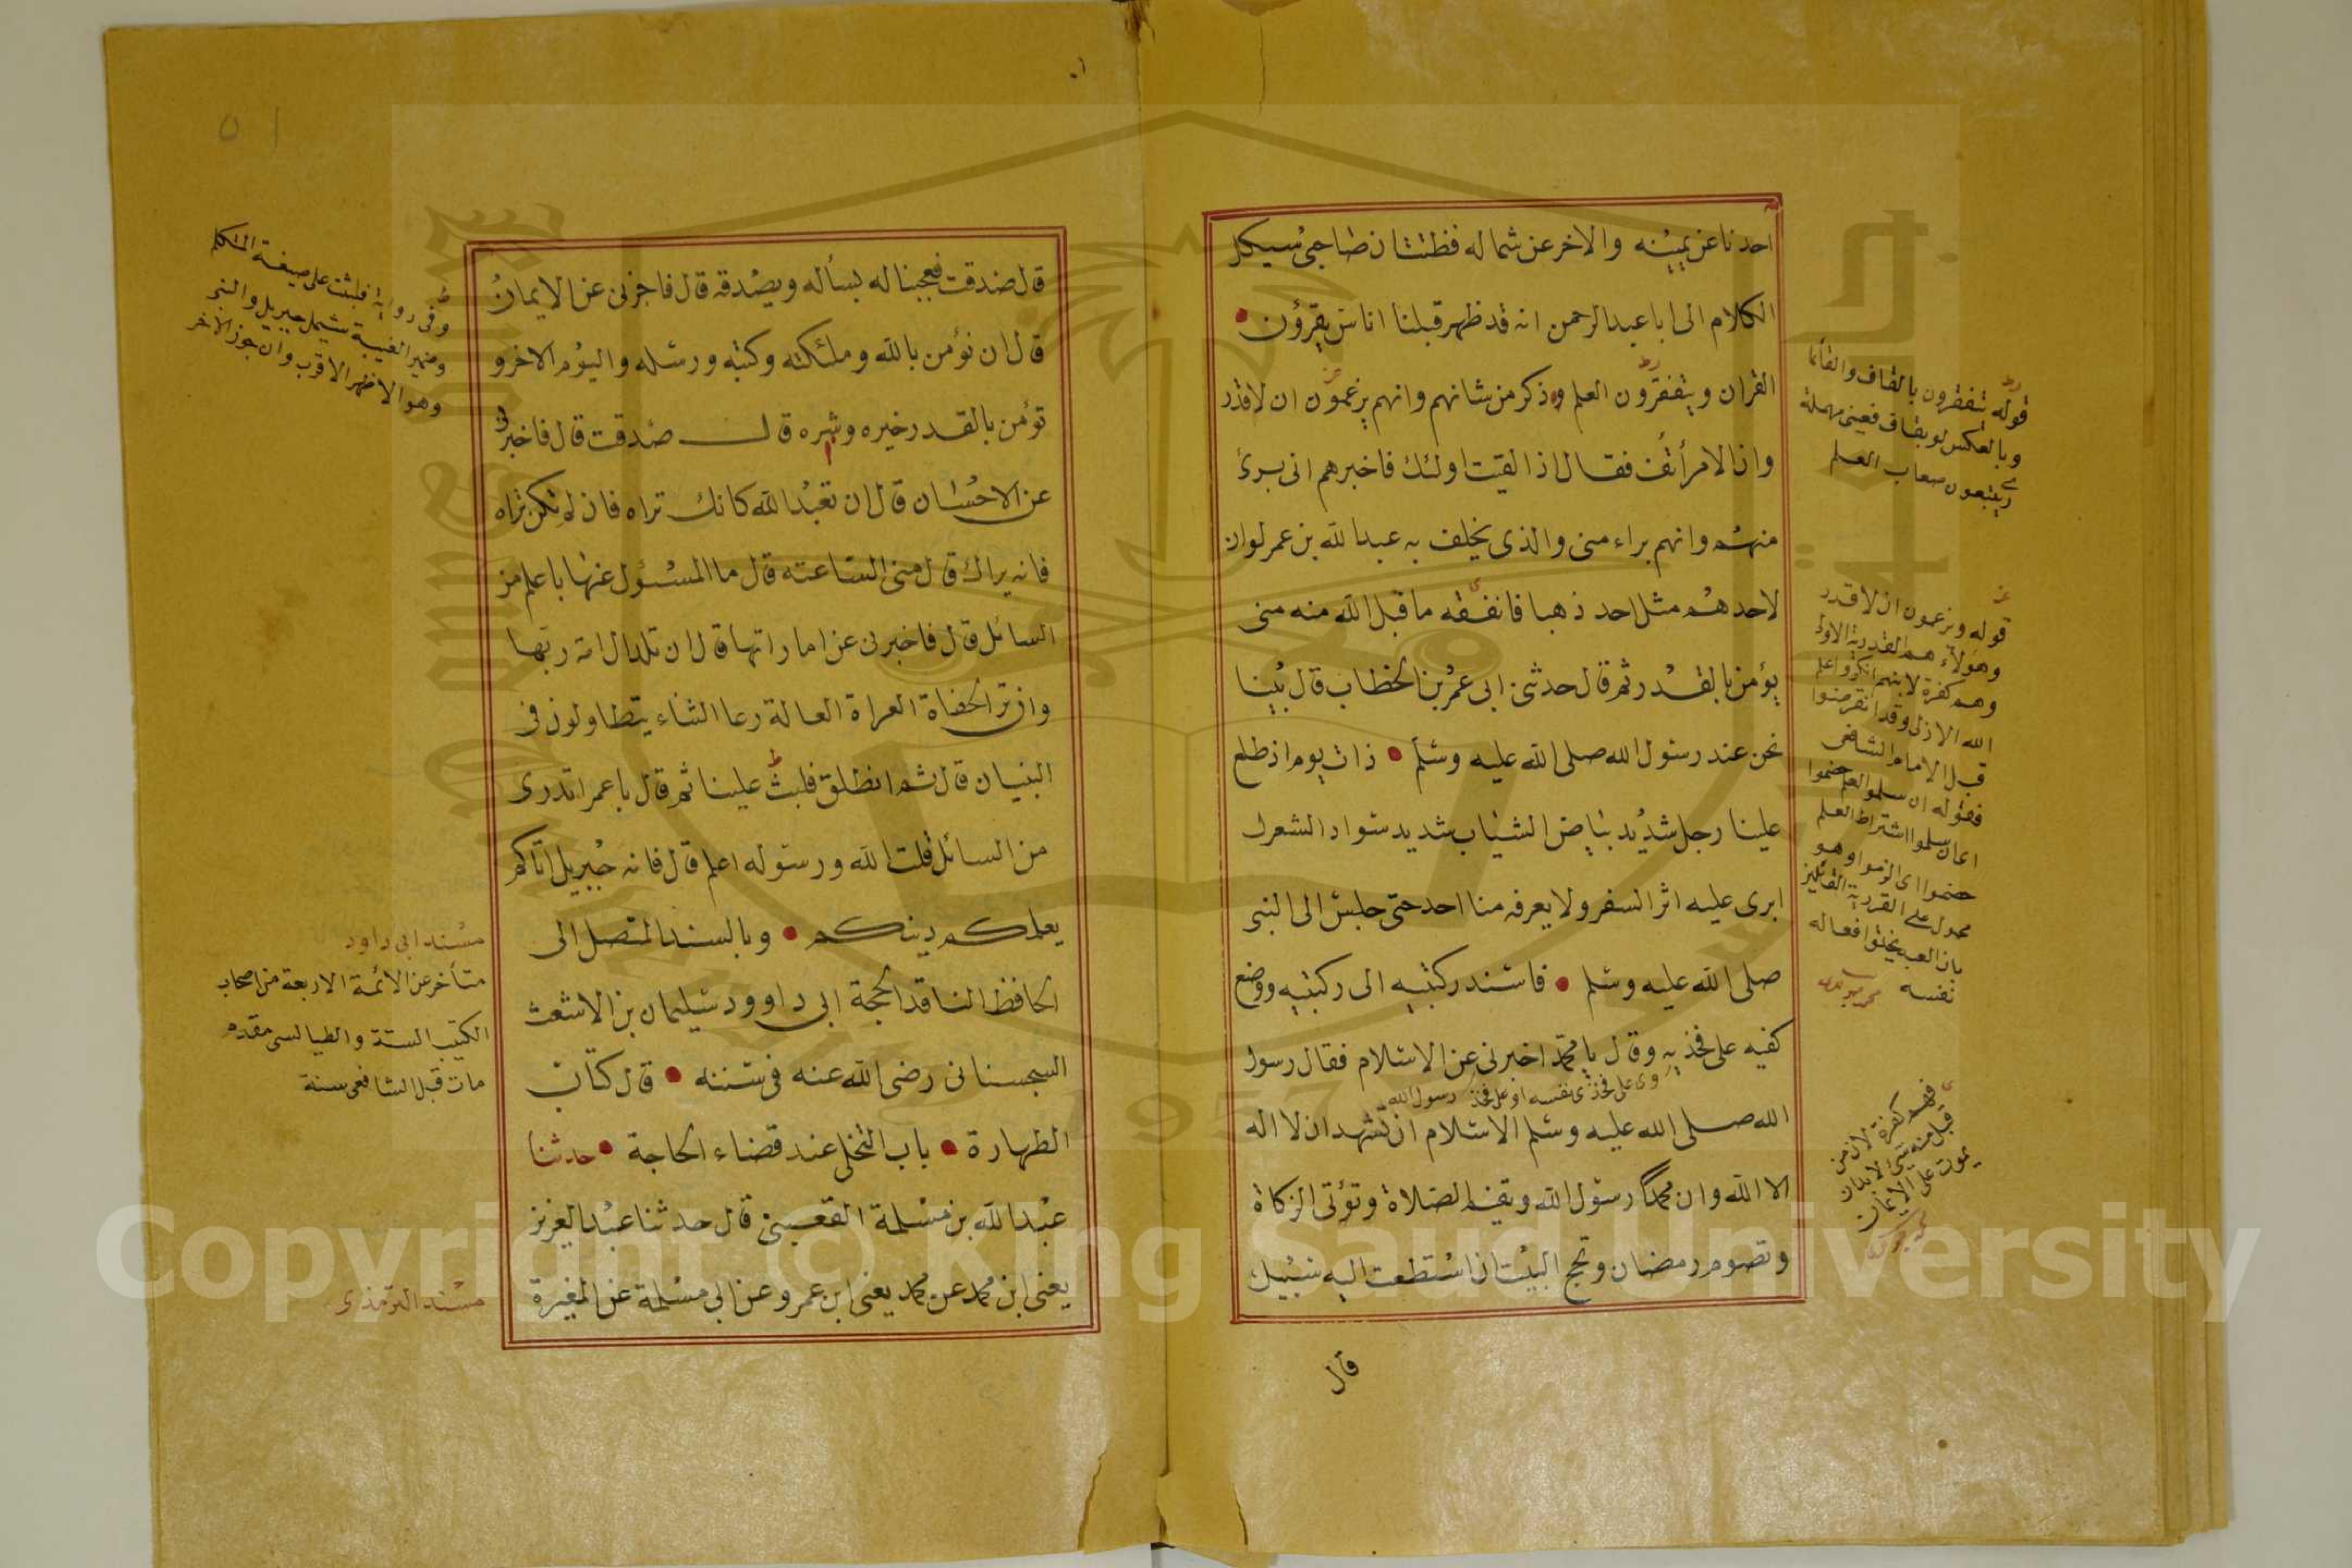 احدنا عن يمينه والاخر عن شماله فظننت ان صاحبي سيكل
الكلام الى ابا عبد الرحمن انه قد ظهر قبلنا اناس يقرؤن
القران ويتفقرون العلم وذكر من شانهم وانهم يزعمون ان لا قدر
وان الامر أنف فقال اذا لقيت اولئك فاخبرهم انى برئ
منهم وانهم براء منى والذى يحلف به عبد الله بن عمر لو ان
لاحدهم مثل احد ذهبا فانفقه ما قبل الله منه منى
يؤمن بالقدر ثم قال حدثنى ابى عمر بن الخطاب قال بينا
نحن عند رسول الله صلى الله عليه وسلم ذات يوم اذ طلع
علينا رجل شديد بياض الثياب شديد سواد الشعر لا
يرى عليه اثر السفر ولا يعرفه منا احد حتى جلس الى النبى
صلى الله عليه وسلم فاسند ركبتيه الى ركبتيه ووضع
كفيه على فخذيه وقال يا محمد اخبرنى عن الاسلام فقال رسول
اى على فخذى نفسه او على فخذ رسول الله
الله صلى الله عليه وسلم الاسلام ان تشهد ان لا اله
الا الله وان محمدا رسول الله وتقيم الصلاة وتؤتى الزكاة
وتصوم رمضان وتحج البيت ان استطعت اليه سبيلا
قال
قوله يتفقرون بالقاف والفا
وبالعكس او بقاف فعين مهملة
يتبعون صعاب العلم
قوله ويزعمون ان لا قدر
وهؤلاء هم القدرية الاولى
وهم كفرة لانهم انكروا علم
الله الازلى وقد انقرضوا
قبل الامام الشافعى
فقوله ان سلموا العلم خصموا
سلموا اشتراط العلم
خصموا اى الزموا وهو
محمول على القدرية القائلين
بان العبد يخلق افعاله
نفسه
فهم كفرة لان من
قبل منه شئ لابد ان
يموت على الايمان
قال صدقت فعجبنا له يسأله ويصدقه قال فاخبرنى عن الايمان
قال ان نؤمن بالله وملئكته وكتبه ورسله واليوم الاخر و
تؤمن بالقدر خيره وشره قال صدقت قال فاخبرنى
عن الاحسان قال ان تعبد الله كانك تراه فان لم تكن تراه
فانه يراك قال متى الساعته قال ما المسئول عنها باعلم من
السائل قال فاخبرنى عن اماراتها قال ان تلد الامة ربتها
وان تر الحفاة العراة العالة رعا الشاء يتطاولون فى
البنيان قال ثم انطلق فلبث علينا ثم قال يا عمر اتدرى
من السائل قلت الله ورسوله اعلم قال فانه جبريل اتاكم
يعلمكم دينكم وبالسند المتصل الى
الحافظ الناقد الحجة ابى داوود سليمان بن الاشعث
السجستانى رضى الله عنه فى سننه قال كتاب
الطهارة باب التخلى عند قضاء الحاجة حدثنا
عبد الله بن مسلمة القعبنى قال حدثنا عبد العزيز
يعنى ابن محمد عن محمد يعنى ابن عمرو عن ابى مسلمة عن المغيرة
وفى رواية فلبثت على صيغة المتكلم
وضمير الغيبة يشمل جبريل والنبى
وهو الاظهر الاقرب وان جوز الاخر
مسند ابى داود
متأخر عن الائمة الاربعة من اصحاب
الكتب الستة والطيالسى مقدم
مات قبل الشافعى سنة
مسند الترمذى
٥١
1957
Copyright © King Saud University